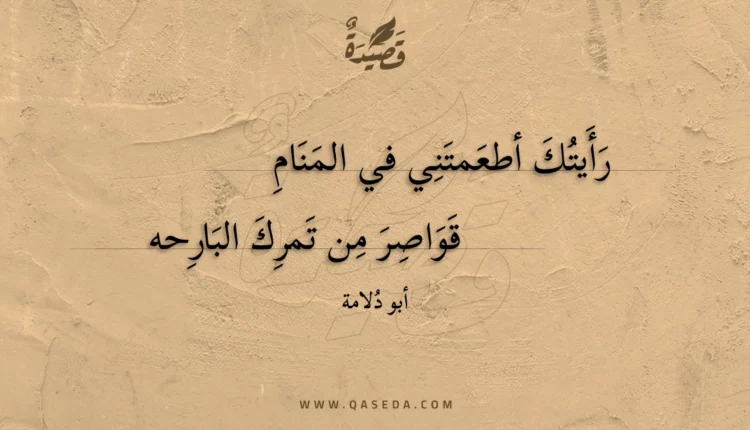 قَصِيْدَةٌ
رَأَيتُكَ أطعَمتَنِي في المَنَامِ
قَوَاصِرَ مِن تَمرِكَ البَارِحه
أبو دُلامة
WWW.QASEDA.COM